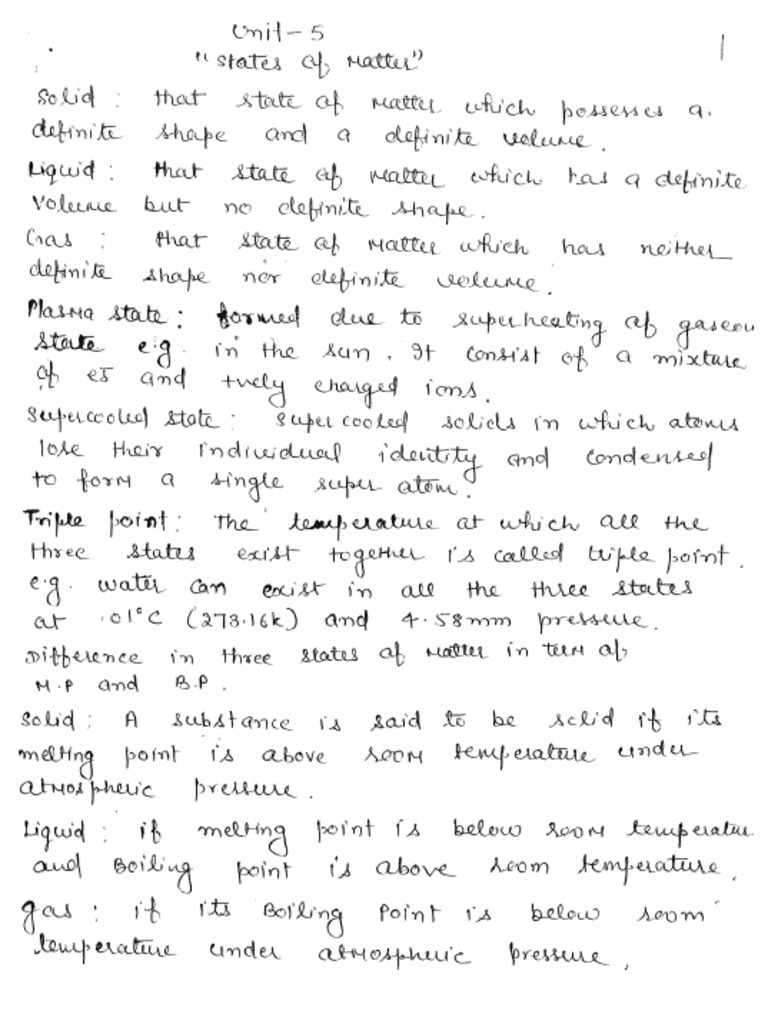 Unit-5
1
"States of Matter"
Solid : that state of matter which possesses a
definite shape and a definite volume.
Liquid : that state of matter which has a definite
volume but no definite shape.
Gas : that state of matter which has neither
definite shape nor definite volume.
Plasma state : formed due to superheating of gaseou
state e.g. in the sun. It consist of a mixture
of and +vely charged ions.
Supercooled state : super cooled solids in which atoms
lose their individual identity and condensed
to form a single super atom.
Triple point : the temperature at which all the
three states exist together is called triple point.
e.g. water can exist in all the three states
at .01°C (273.16k) and 4.58mm pressure.
Difference in three states of matter in term of
M.P and B.P.
Solid : A substance is said to be solid if its
melting point is above room temperature under
atmospheric pressure.
Liquid : if melting point is below room temperatur
and Boiling point is above room temperature.
gas : if its Boiling Point is below room
temperature under atmospheric pressure.